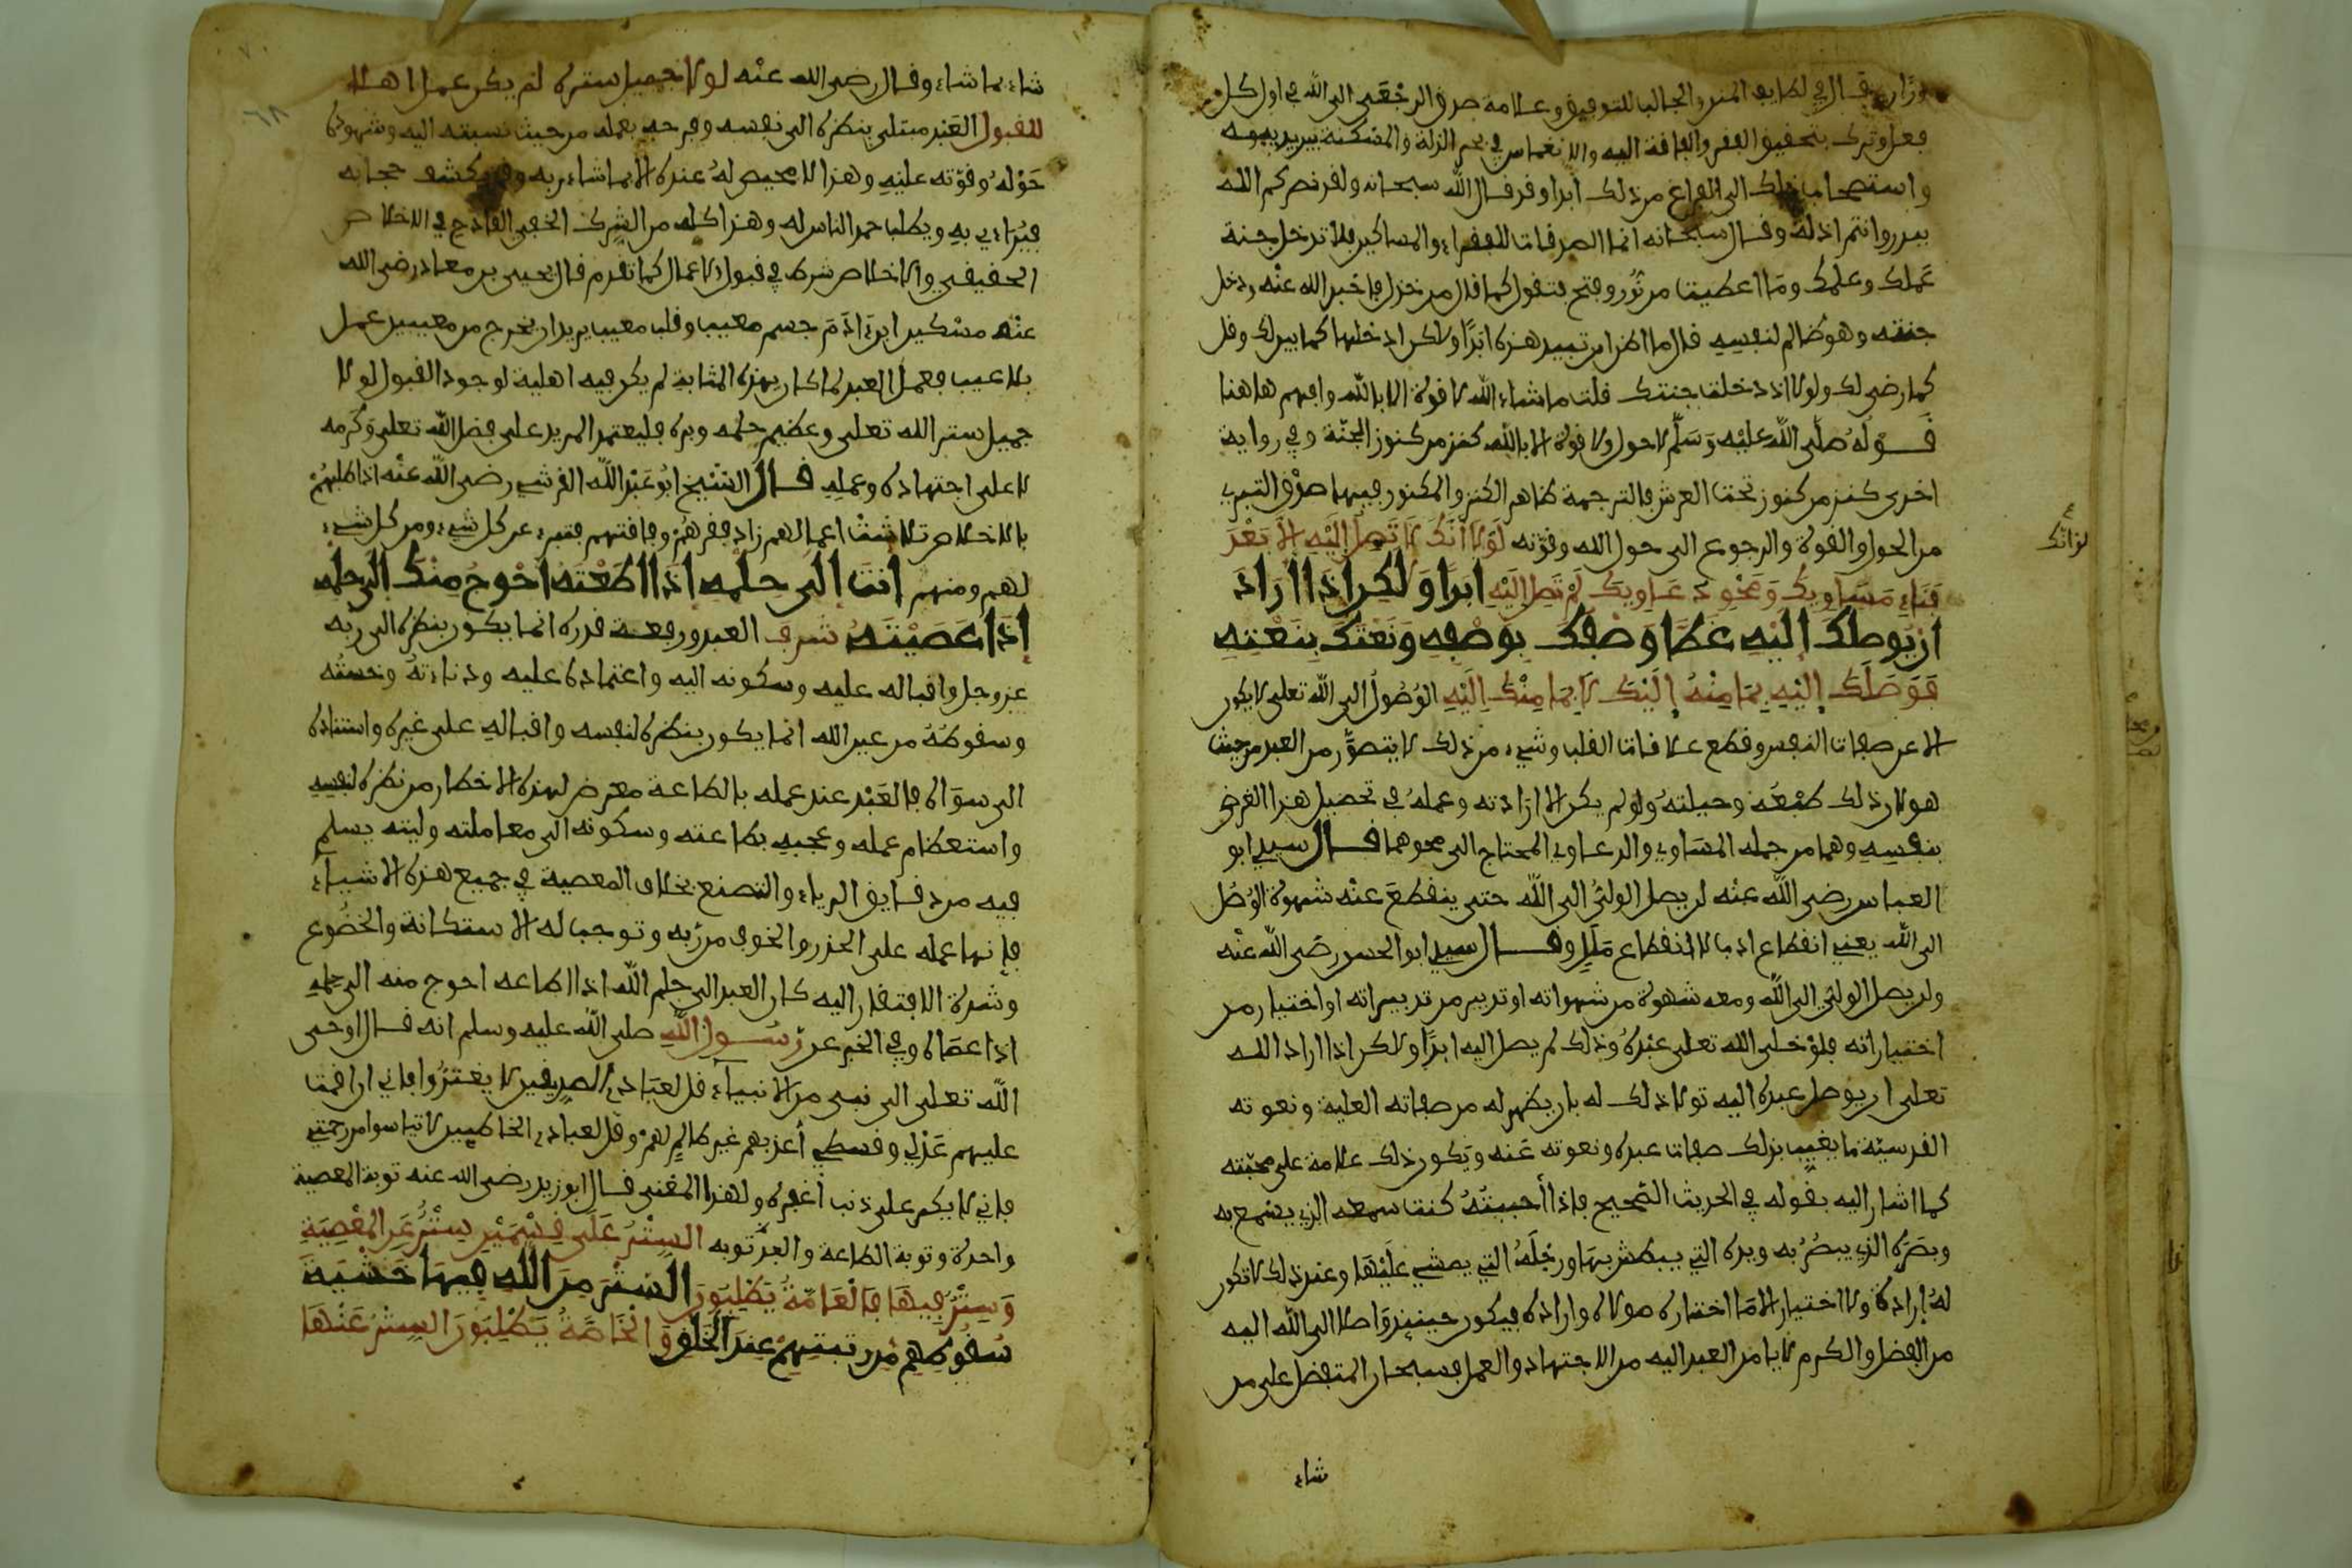 وزار قال في لطايف المنن والجالب للتوفيق وعلامة صدق الرجعى الى الله في اول كل
فعل وترك بتحقيق الفقر والفاقة اليه والانغماس في بحر الذلة والمسكنة بين يديه
واستصحاب ذلك الى الفراغ من ذلك ابدا وقد قال الله سبحانه ولقد نصركم الله
ببدر وانتم اذلة وقال سبحانه انما الصدقات للفقراء والمساكين فلا تدخل جنة
عملك وعلمك وما اعطيت من نور وفتح فتقول كما قال من خذل فاخبر الله عنه ودخل
جنته وهو ظالم لنفسه قال ما اظن ان تبيد هذه ابدا ولاكن ادخلها كما بين لك وقل
كما رضي لك ولولا اذ دخلت جنتك قلت ما شاء الله لا قوة الا بالله وافهم هاهنا
قوله صلى الله عليه وسلم لا حول ولا قوة الا بالله كنز من كنوز الجنة وفي رواية
اخرى كنز من كنوز تحت العرش فالترجمة ظاهر الكنز والمكنوز فيها صدق التبري
من الحول والقوة والرجوع الى حول الله وقوته لولا انك لا تصل اليه الا بعد
لو انك
فناء مساويك ومحو دعاويك لم تصل اليه ابدا ولكن اذا اراد
ان يوصلك اليه غطا وصفك بوصفه ونعتك بنعته
فوصلك اليه بما منه اليك لا بما منك اليه الوصول الى الله تعلى لا يكون
الا عن صفات النفس وقطع علاقات القلب وشيء من ذلك لا يتصور من العبد من حيث
هو لان ذلك طبعه وجبلته ولو لم يكن الا ارادته وعمله في تحصيل هذا الغرض
بنفسه وهما من جملة المساوي والدعاوي المحتاج الى محوهما قال سيدي ابو
العباس رضي الله عنه لن يصل الولي الى الله حتى ينقطع عنه شهوة الوصل
الى الله يعني انقطاع ادب لا انقطاع ملل وقال سيدي ابو الحسن رضي الله عنه
ولن يصل الولي الى الله ومعه شهوة من شهواته او تدبير من تدبيراته او اختيار من
اختياراته فلو خلى الله تعلى عبده وذلك لم يصل اليه ابدا ولاكن اذا اراد الله
تعلى ان يوصل عبده اليه تولا ذلك له بان يظهر له من صفاته العلية ونعوته
القدسية ما يغيب بذلك صفات عبده ونعوته عنه ويكون ذلك علامة على محبته
كما اشار اليه بقوله في الحديث الصحيح فاذا احببته كنت سمعه الذي يسمع به
وبصره الذي يبصر به ويده التي يبطش بها ورجله التي يمشي عليها وعند ذلك لا تكون
له ارادة ولا اختيار الا ما اختاره مولاه واراده فيكون حينئذ واصلا الى الله اليه
من الفضل والكرم لا بما من العبد اليه من الاجتهاد والعمل فسبحان المتفضل على من
شاء
شاء بما شاء وقال رضي الله عنه لولا جميل ستره لم يكن عمل اهلا
للقبول العبد مبتلى بنظره الى نفسه وفرحه بعمله من حيث نسبته اليه وشهود
حوله وقوته عليه وهذا لا محيص له عنه الا بما شاء ربه وقد يكشف حجابه
فيراءي به ويطلب حمد الناس له وهذا كله من الشرك الخفي القادح في الاخلاص
الحقيقي والاخلاص شرط في قبول الاعمال كما تقدم قال يحيى بن معاذ رضي الله
عنه مسكين ابن ادم جسم معيب وقلب معيب يريد ان يخرج من معيبين عمل
بلا عيب فعمل العبد لما كان بهذه المثابة لم يكن فيه اهلية لوجود القبول لولا
جميل ستر الله تعلى وعظيم حلمه وبره فليعتمد المريد على فضل الله تعلى وكرمه
لا على اجتهاده وعمله قال الشيخ ابو عبد الله القرشي رضي الله عنه اذا طلبهم
بالاخلاص تلاشت اعمالهم زاد فقرهم وفاقتهم فتبرء عن كل شيء ومن كل شيء
لهم ومنهم انت الى حلمه اذا اطعته احوج منك الى حلمه
اذا عصيته شرف العبد ورفعة قدره انما يكون بنظره الى ربه
عز وجل واقباله عليه وسكونه اليه واعتماده عليه ودناءته وخسته
وسقوطه من عين الله انما يكون بنظره لنفسه واقباله على غيره واستناده
الى سواه فالعبد عند عمله بالطاعة معرض لهذه الاخطار من نظره لنفسه
واستعظام عمله وعجبه بطاعته وسكونه الى معاملته وليته يسلم
فيه من دقايق الرياء والتصنع بخلاف المعصية في جميع هذه الاشياء
فانها عمله على الحذر والخوف من ربه وتوجب له الاستكانة والخضوع
وشدة الافتقار اليه كان العبد الى حلم الله اذا اطاعه احوج منه الى حلمه
اذا عصاه وفي الخبر عن رسول الله صلى الله عليه وسلم انه قال اوحى
الله تعلى الى نبي من الانبياء قل لعبادي الصديقين لا يغتروا فاني ان اقمت
عليهم عدلي وقسطي أعذبهم غير ظالم لهم وقل لعبادي الخاطيين لا تياسوا من رحمتي
فاني لا يكبر علي ذنب أغفره ولهذا المعنى قال ابو زيد رضي الله عنه توبة المعصية
واحدة وتوبة الطاعة والف توبه الستر على قسمين ستر عن المعصية
وستر فيها فالعامة يطلبون الستر من الله فيها خشية
سقوطهم من رتبتهم عند الخلق والخاصة يطلبون الستر عنها